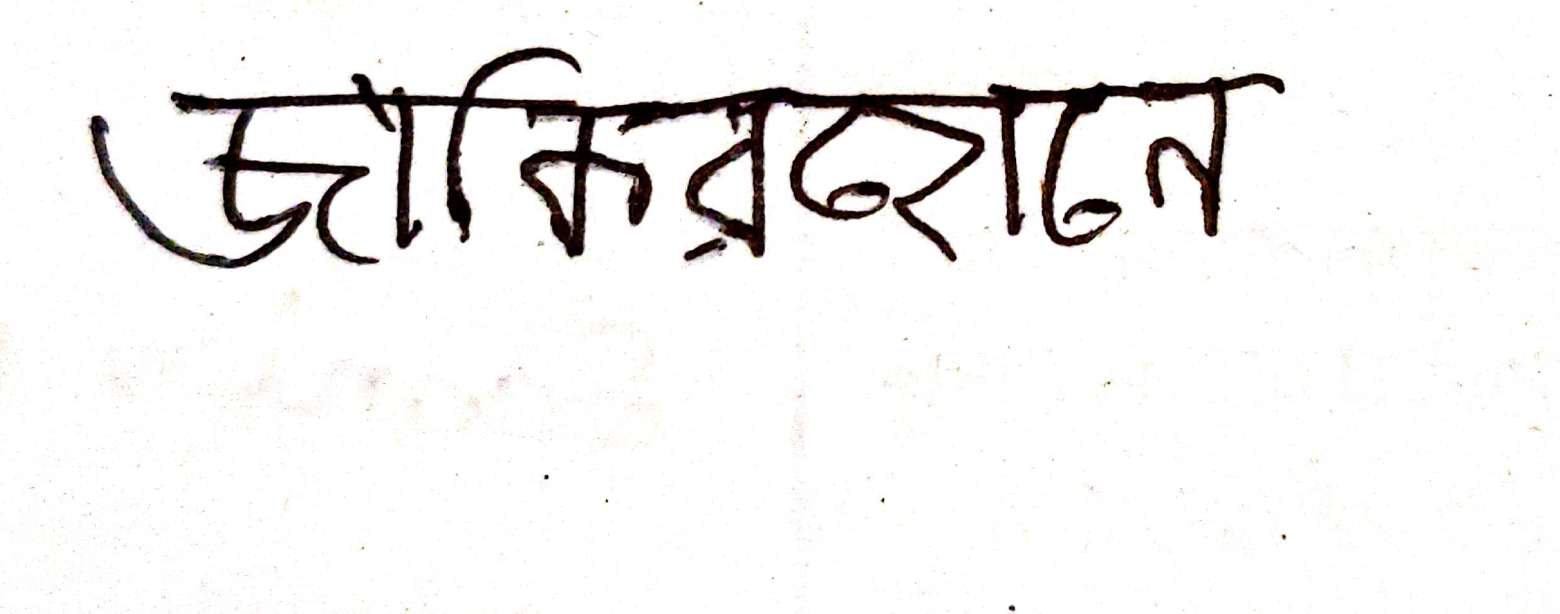 জাকিরহোনে